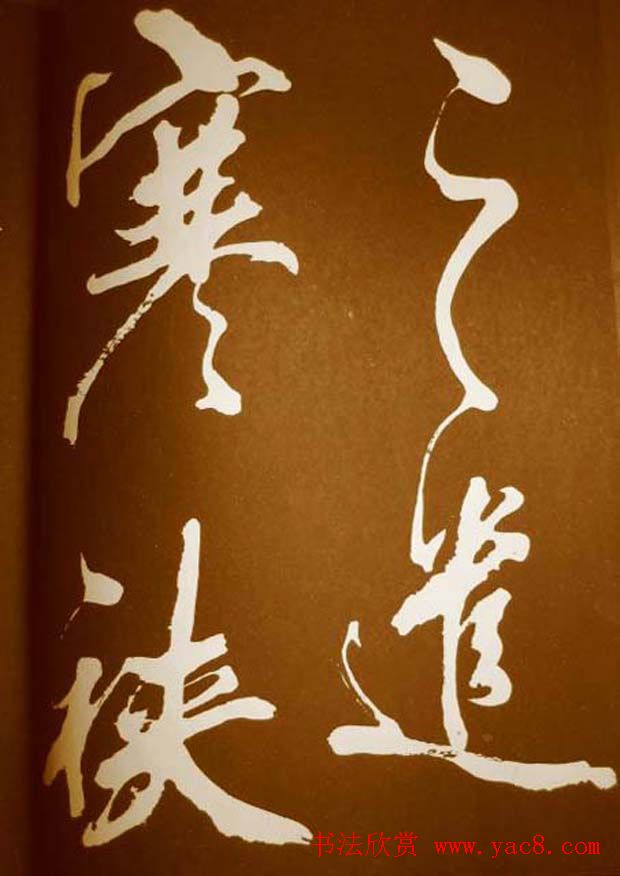 之遣
寒
书法欣赏 www.yac8.com